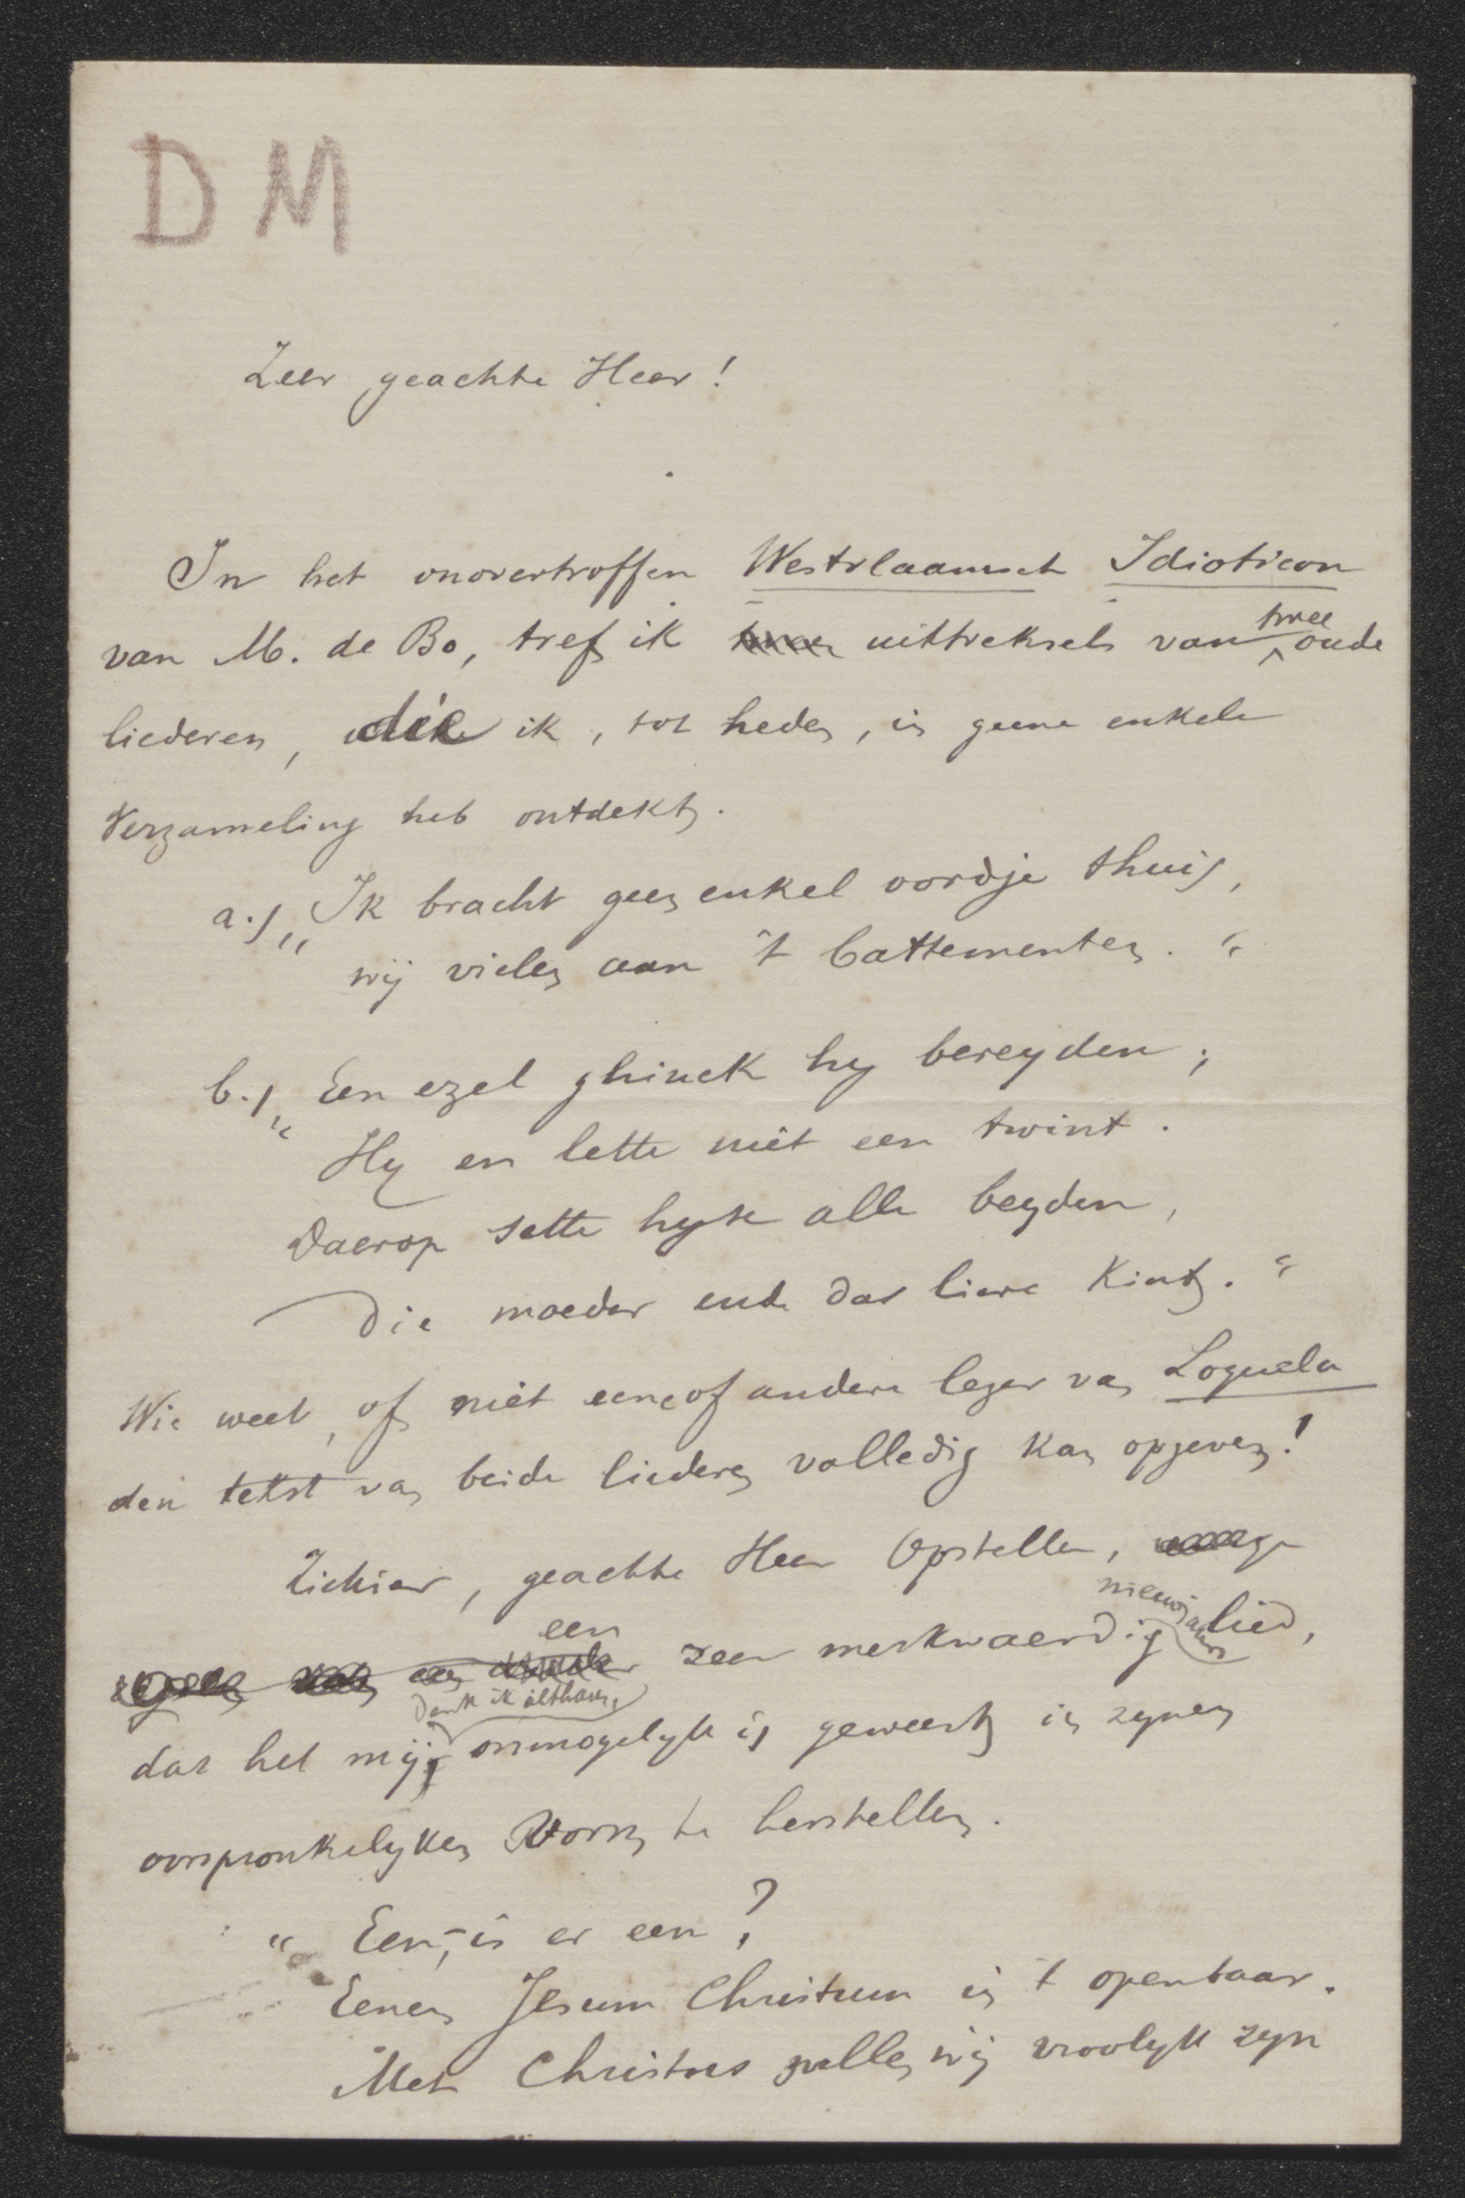 D M
Zeer geachte Heer!
In het onovertroffen Westvlaamsch Idioticon
van M. de Bo, tref ik uittreksels van twee oude
liederen, die ik, tot heden, in geene enkele
Verzameling heb ontdekt.
a.) „Ik bracht geen enkel oordje thuis,
wij vielen aan 't battementen."
b.) „Een ezel ghinck hy bereyden;
Hy en lette niet een twint.
Daerop sette hyse alle beyden,
Die moeder ende dat lieve Kint."
Wie weet, of niet eene of andere lezer van Loquela
den tekst van beide liederen volledig kan opgeven!
Ziehier, geachte Heer Opsteller,
een zeer merkwaerdig nieuwjaars lied,
dat het mij, denk ik althans, onmogelyk is geweest in zynen
oorspronkelyken Vorm te herstellen.
„Een, is er een?
Eenen Jesum Christum is 't openbaar.
Met Christus zullen wij vroolyk zyn